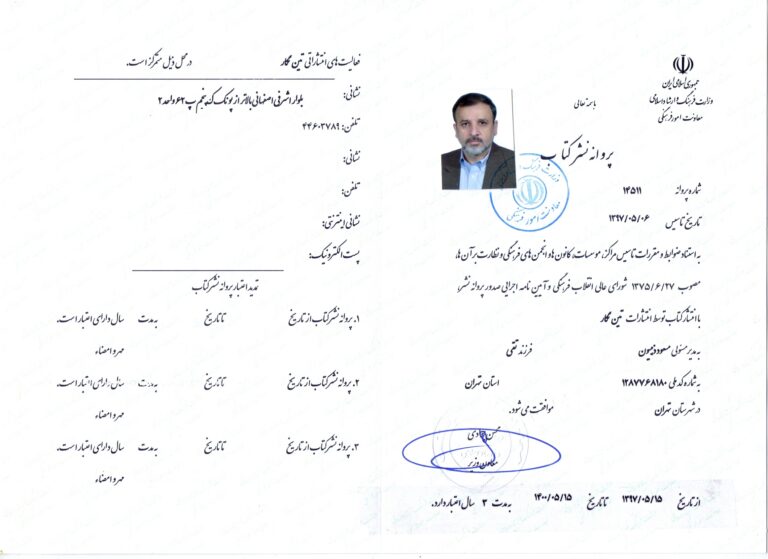 جمهوری اسلامی ایران
وزارت فرهنگ و ارشاد اسلامی
معاونت امور فرهنگی
باسمه تعالی
پروانه نشر کتاب
شماره پروانه ۱۴۵۱۱
تاریخ تاسیس ۱۳۹۷/۰۵/۰۶
به استناد ضوابط و مقررات تاسیس مراکز، موسسات، کانون ها و انجمن های فرهنگی و نظارت بر آن ها،
مصوب ۱۳۷۵/۶/۲۷ شورای عالی انقلاب فرهنگی و آیین نامه اجرایی صدور پروانه نشر،
با انتشار کتاب توسط انتشارات تین نگار
به مدیر مسئولی مسعود فرزند تقی
به شماره کد ملی ۱۲۸۷۷۶۸۱۸۰ استان تهران
در شهرستان تهران موافقت می شود.
محسن جوادی
معاون وزیر
از تاریخ ۱۳۹۷/۰۵/۱۵ تا تاریخ ۱۴۰۰/۰۵/۱۵ به مدت ۳ سال اعتبار دارد.
فعالیت های انتشاراتی تین نگار در محل ذیل متمرکز است.
نشانی: بلوار اشرفی اصفهانی بالاتر از پونک کندپنجم پ۶۲ واحد ۲
تلفن: ۴۴۶۰۳۷۸۹
نشانی:
تلفن:
نشانی اینترنتی:
پست الکترونیک:
تمدید اعتبار پروانه نشر کتاب
۱. پروانه نشر کتاب از تاریخ تا تاریخ به مدت سال دارای اعتبار است.
مهر و امضاء
۲. پروانه نشر کتاب از تاریخ تا تاریخ به مدت سال دارای اعتبار است.
مهر و امضاء
۳. پروانه نشر کتاب از تاریخ تا تاریخ به مدت سال دارای اعتبار است.
مهر و امضاء